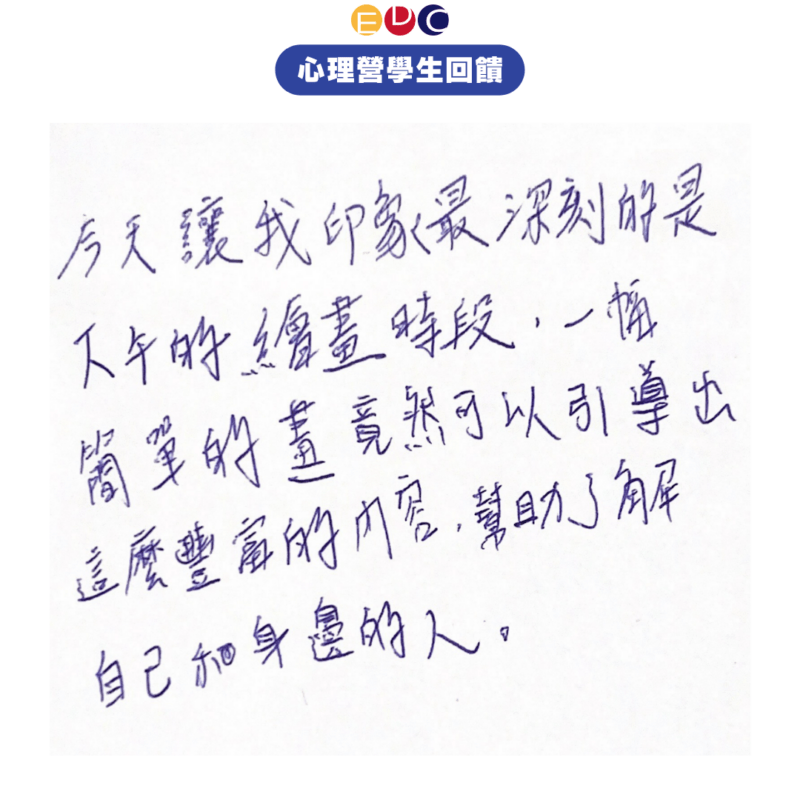 EDC
心理營學生回饋
今天讓我印象最深刻的是
下午的繪畫時段,一幅
簡單的畫竟然可以引導出
這麼豐富的內容,幫助了解
自己和身邊的人。